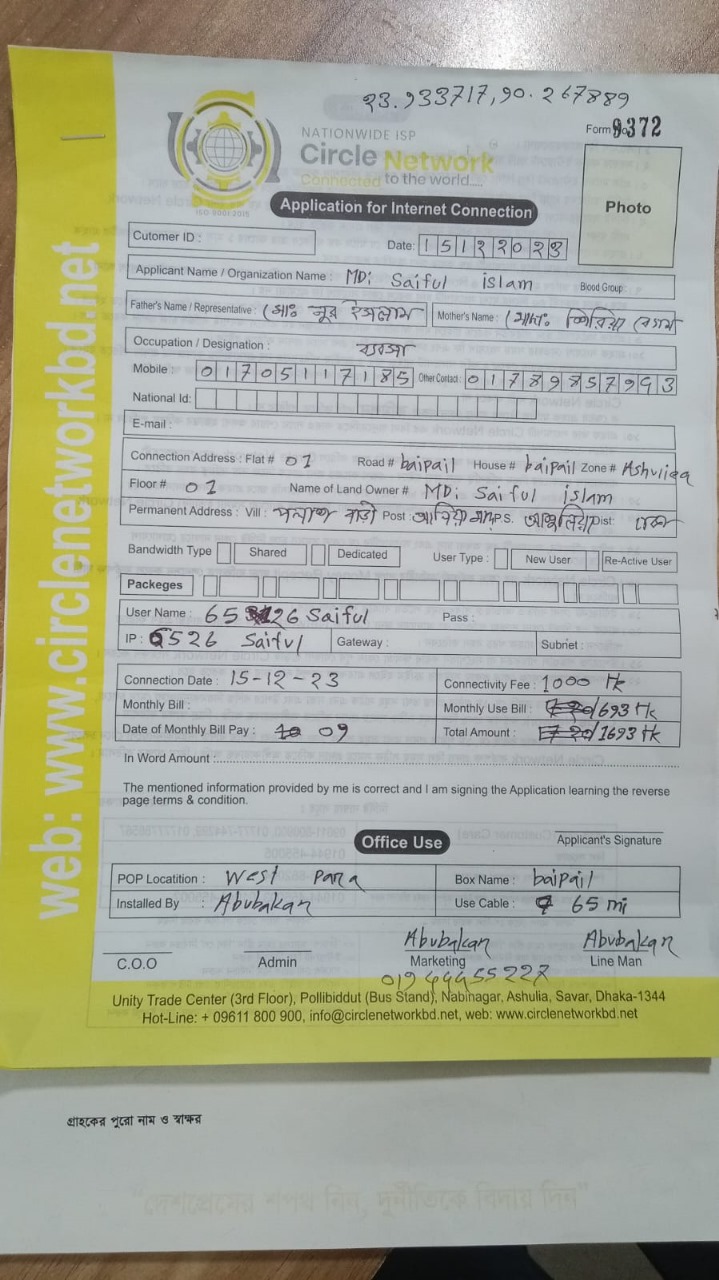 23.933717,90.267889
NATIONWIDE ISP
Circle Network
Connected to the world.....
ISO 9001:2015
Form No 372
Photo
Application for Internet Connection
Cutomer ID :
Date: 15122023
Applicant Name / Organization Name : MD: Saiful islam Blood Group :
Father's Name / Representative : মোঃ নূর ইসলাম Mother's Name : মোছাঃ বেগম
Occupation / Designation : ব্যবসা
Mobile : 01705117185 Other Contact : 01789857993
National Id:
E-mail :
Connection Address : Flat # 01 Road # baipail House # baipail Zone # Ashuliya
Floor # 01 Name of Land Owner # MD: Saiful islam
Permanent Address : Vill : পলাশ বাড়ী Post : P.S. আশুলিয়া Dist: ঢাকা
Bandwidth Type Shared Dedicated User Type : New User Re-Active User
Packeges
User Name : 6526 Saiful Pass :
IP : 6526 Saiful Gateway : Subnet :
Connection Date : 15-12-23 Connectivity Fee : 1000 tk
Monthly Bill : Monthly Use Bill : 693 tk
Date of Monthly Bill Pay : 09 Total Amount : 1693 tk
In Word Amount :
The mentioned information provided by me is correct and I am signing the Application learning the reverse
page terms & condition.
Office Use
Applicant's Signature
POP Locatition : West para Box Name : baipail
Installed By : Abubakar Use Cable : 65 mi
Abubakar Abubakar
C.O.O Admin Marketing Line Man
01944455227
Unity Trade Center (3rd Floor), Pollibiddut (Bus Stand), Nabinagar, Ashulia, Savar, Dhaka-1344
Hot-Line: + 09611 800 900, info@circlenetworkbd.net, web: www.circlenetworkbd.net
web: www.circlenetworkbd.net
গ্রাহকের পুরো নাম ও স্বাক্ষর
"দেশপ্রেমের শপথ নিন, দুর্নীতিকে বিদায় দিন"